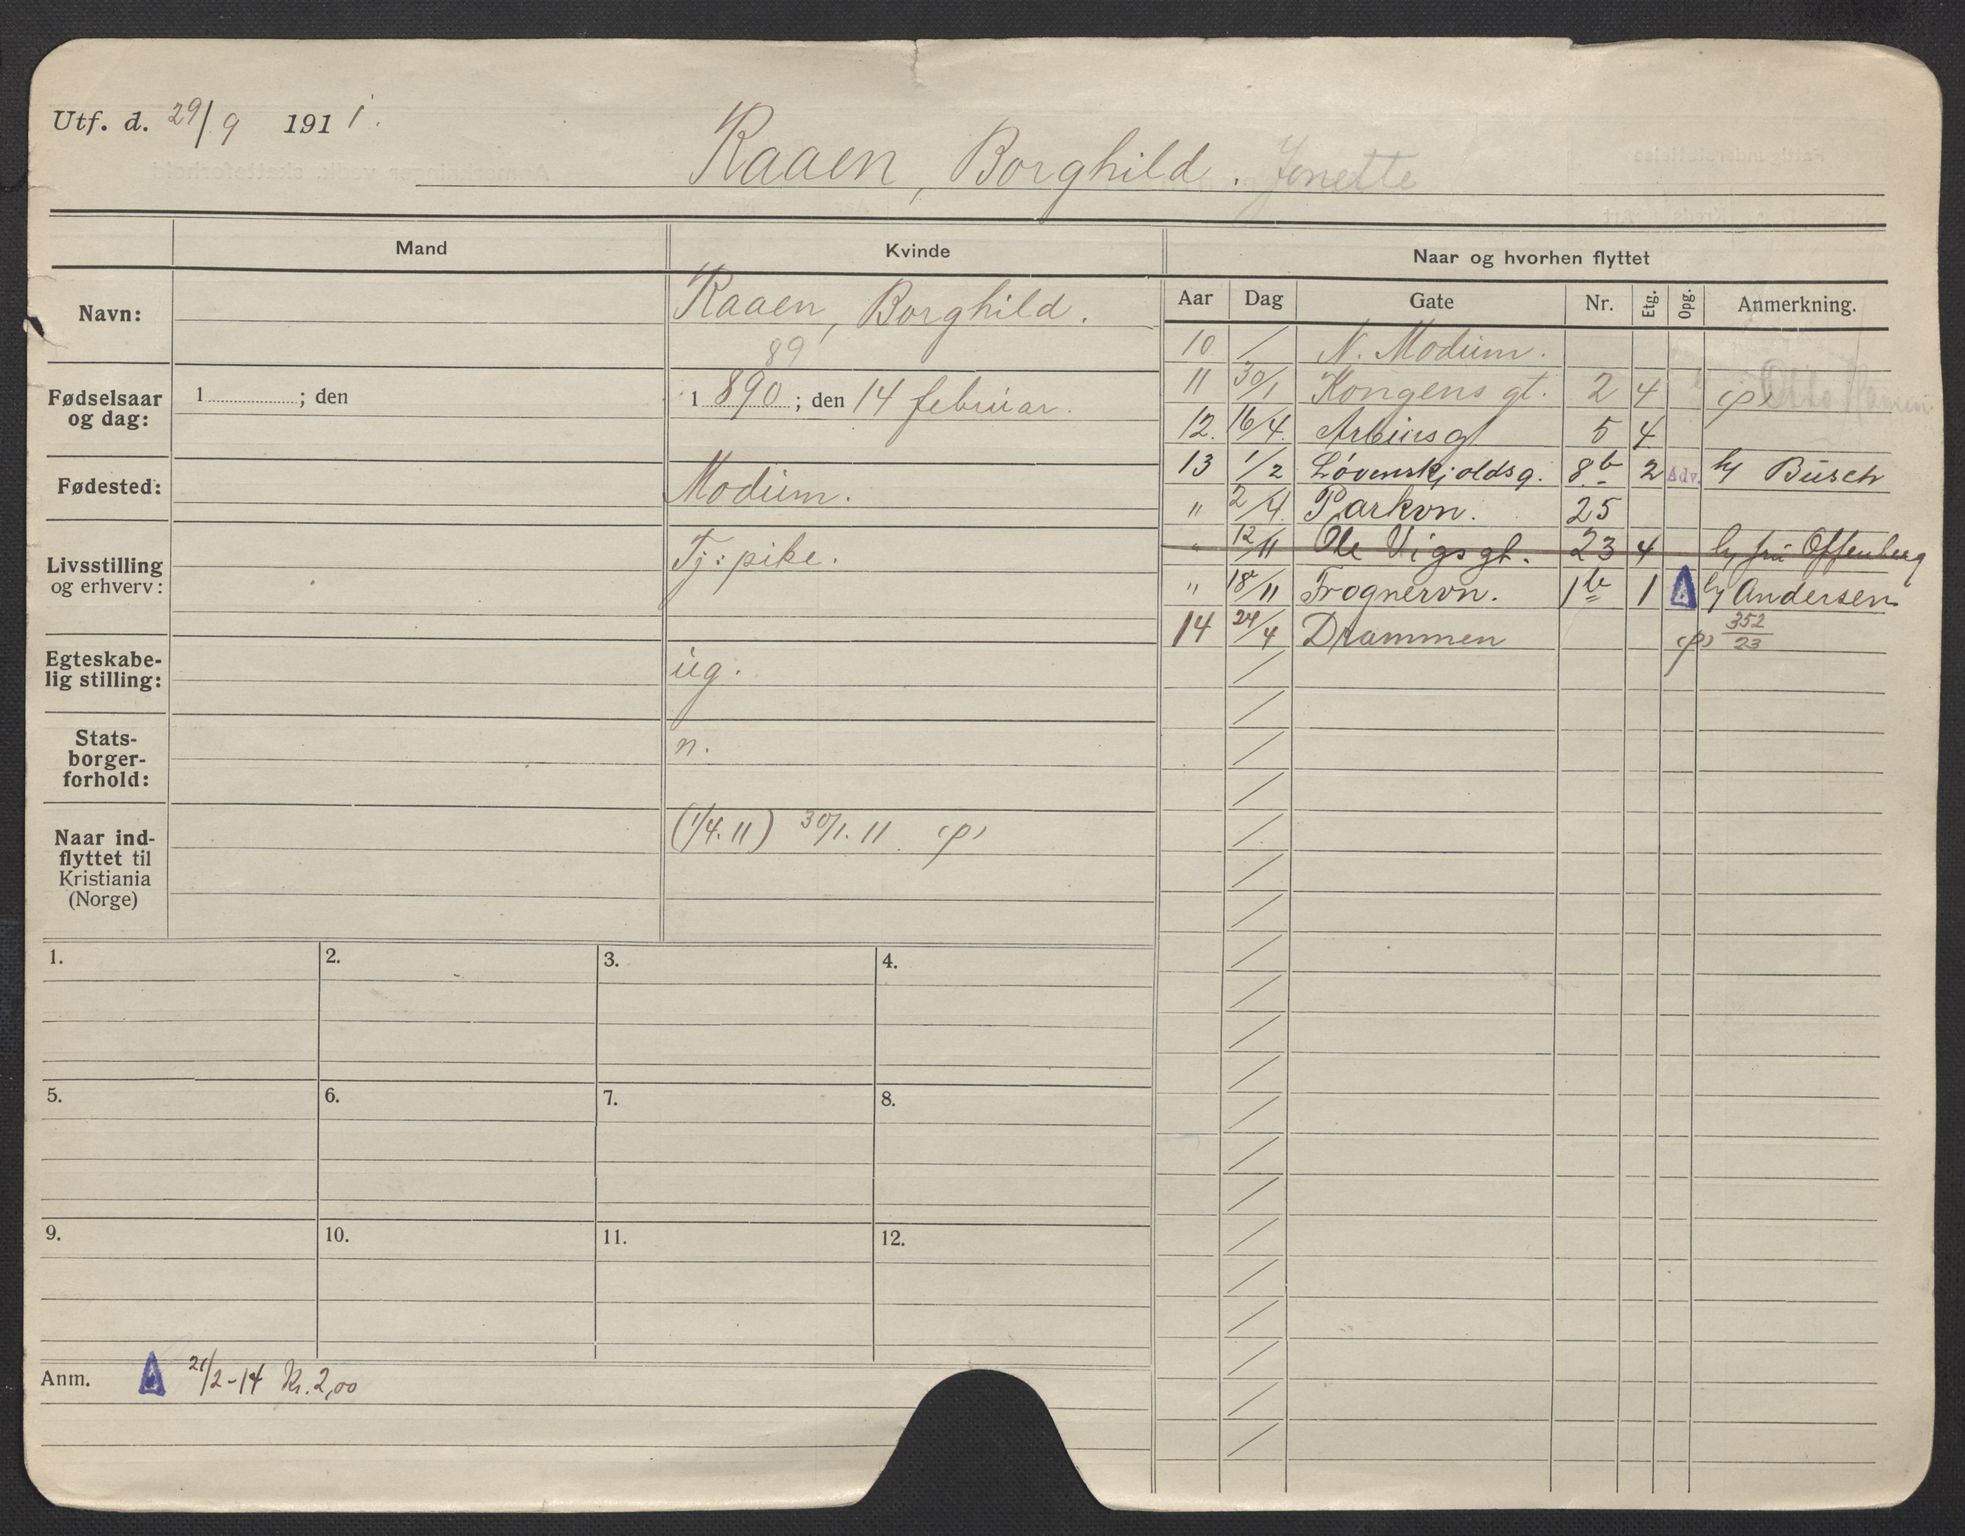 Utf. d. 29/9 1911.
Raaen, Borghild. Jonette
Mand
Kvinde
Naar og hvorhen flyttet
Aar Dag Gate Nr. Etg. Opg. Anmerkning.
Navn:
Raaen, Borghild.
89
Fødselsaar og dag:
1 ; den
1 890 ; den 14 februar.
Fødested:
Modum.
Livsstilling og erhverv:
Tj: pike.
Egteskabe-
lig stilling:
ug.
Stats-
borger-
forhold:
n.
Naar ind-
flyttet til
Kristiania
(Norge)
(1/4. 11) 30/1. 11
10 / N. Modum.
11 30/1 Kongens gt. 2 4
12. 16/4. Arbiensgt 5 4
13 1/2 Løvenskjoldsg. 8b 2 Adv. h/ Busch
" 2/4. Parkvn. 25
" 12/11 Ole Vigs gt. 23 4 h/ fru Offenberg
" 18/11 Frognervn. 1b 1 h/ Andersen
14 24/4 Drammen 352/23
1. 2. 3. 4.
5. 6. 7. 8.
9. 10. 11. 12.
Anm. 21/2-14 Kr. 2,00